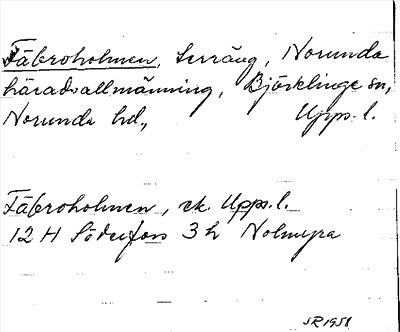 Fäbroholmen, terräng, Norunda
häradsallmänning, Björklinge sn,
Norunda hd., Upps. l.
Fäbroholmen, ek. Upps. l.
12 H Söderfors 3 h Nolmyra
SR 1951